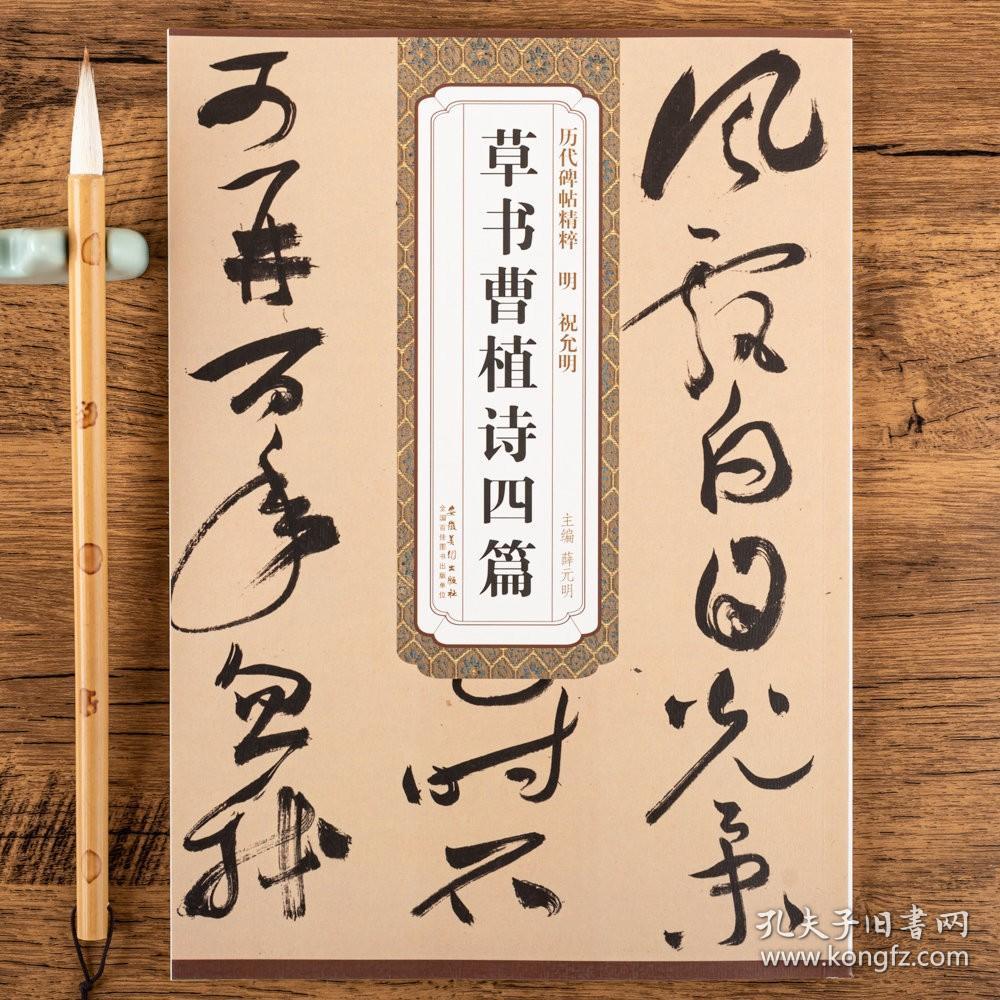 風飄白日光景
历代碑帖精粹 明 祝允明
主编 薛元明
草书曹植诗四篇
安徽美术出版社
全国百佳图书出版单位
時不
可再百年忽我
孔夫子旧書网
www.kongfz.com